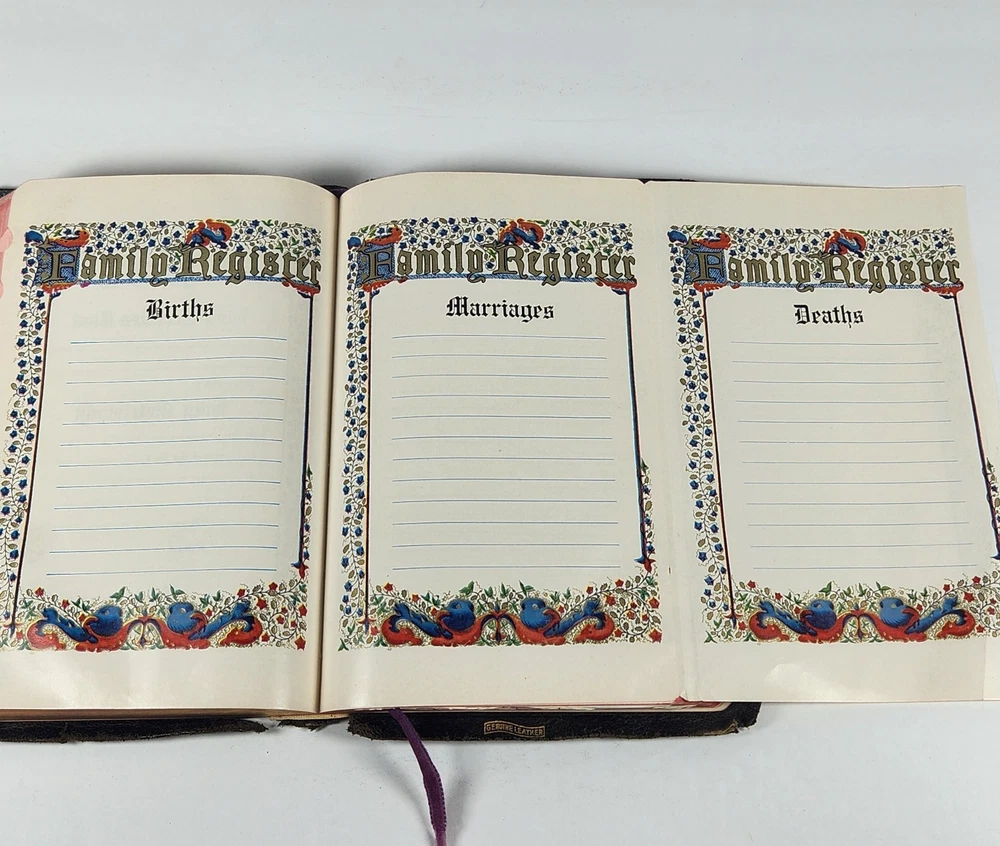 Family Register
Births
Family Register
Marriages
Family Register
Deaths
GENUINE LEATHER